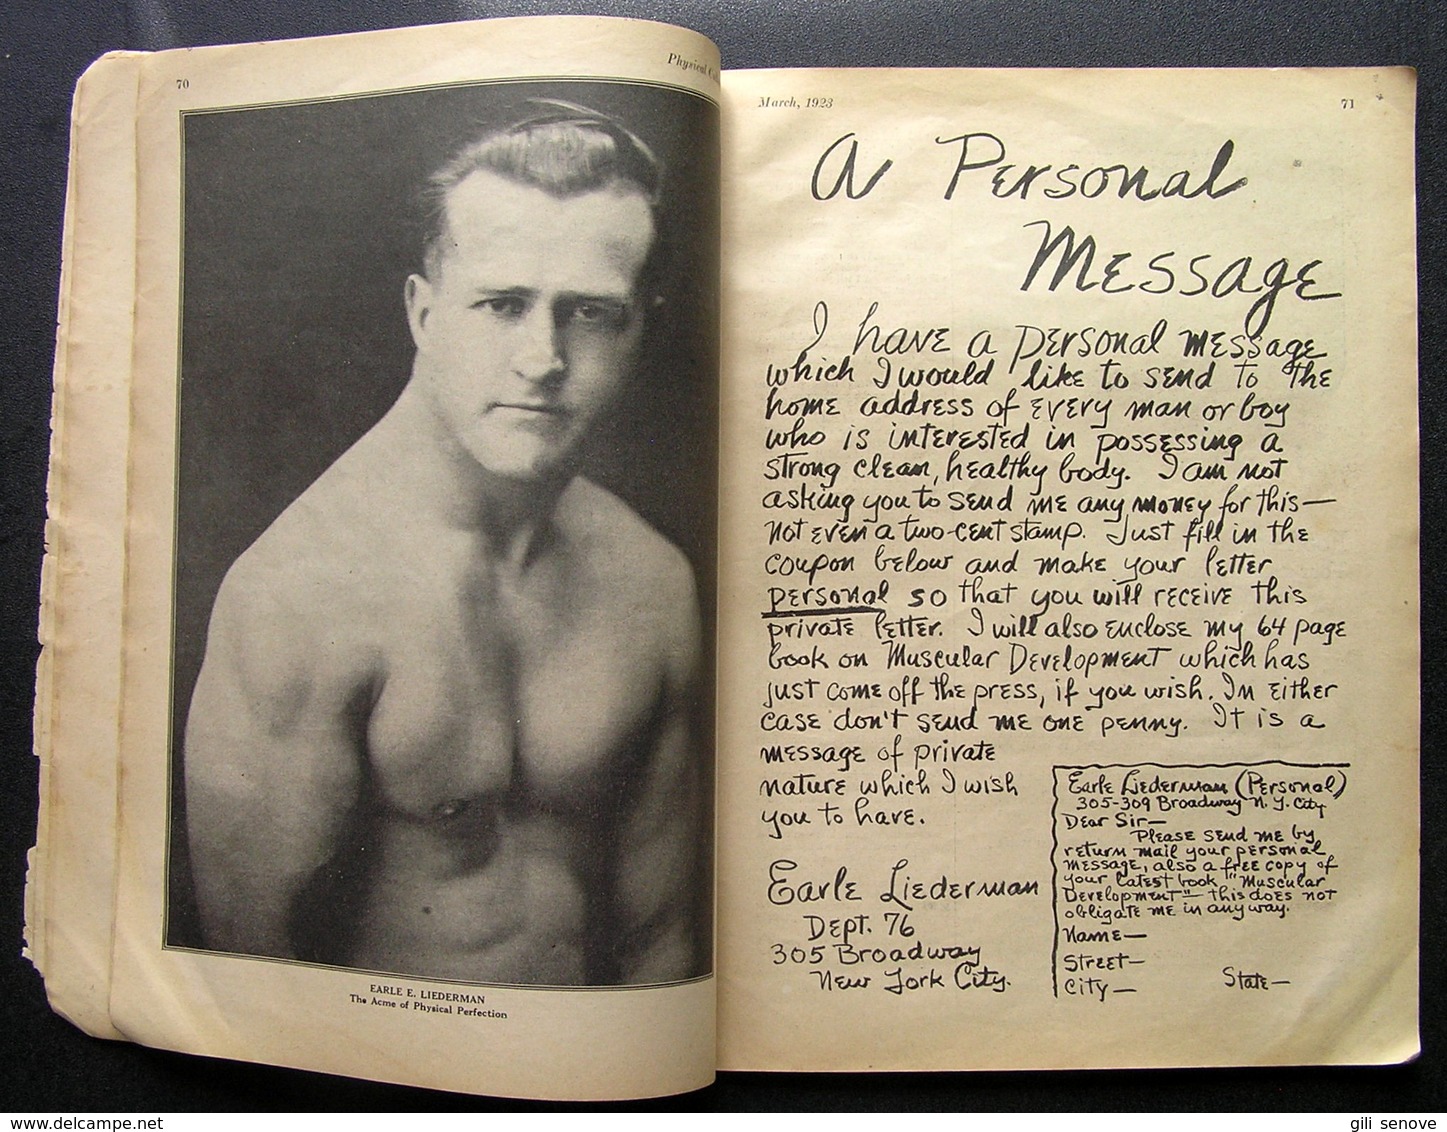 70
Physical
EARLE E. LIEDERMAN
The Acme of Physical Perfection
March, 1923
71
A Personal
Message
I have a personal message
which I would like to send to the
home address of every man or boy
who is interested in possessing a
strong clean, healthy body. I am not
asking you to send me any money for this—
not even a two-cent stamp. Just fill in the
coupon below and make your letter
personal so that you will receive this
private letter. I will also enclose my 64 page
book on Muscular Development which has
just come off the press, if you wish. In either
case don't send me one penny. It is a
message of private
nature which I wish
you to have.
Earle Liederman
Dept. 76
305 Broadway
New York City.
Earle Liederman (Personal)
305-309 Broadway N. Y. City
Dear Sir—
Please send me by
return mail your personal
message, also a free copy of
your latest book "Muscular
Development" — this does not
obligate me in any way.
Name—
Street—
City— State—
gili senove